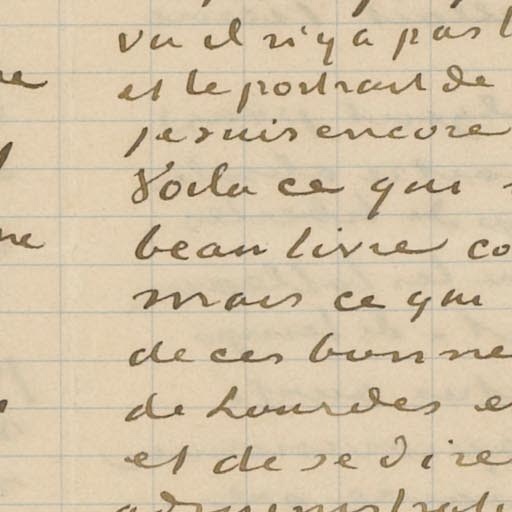 vu il n'y a pas
et le portrait de
je suis encore
Voila ce qui
beau livre co
mais ce qui
de ces bonne
de Lourdes e
et de se dire